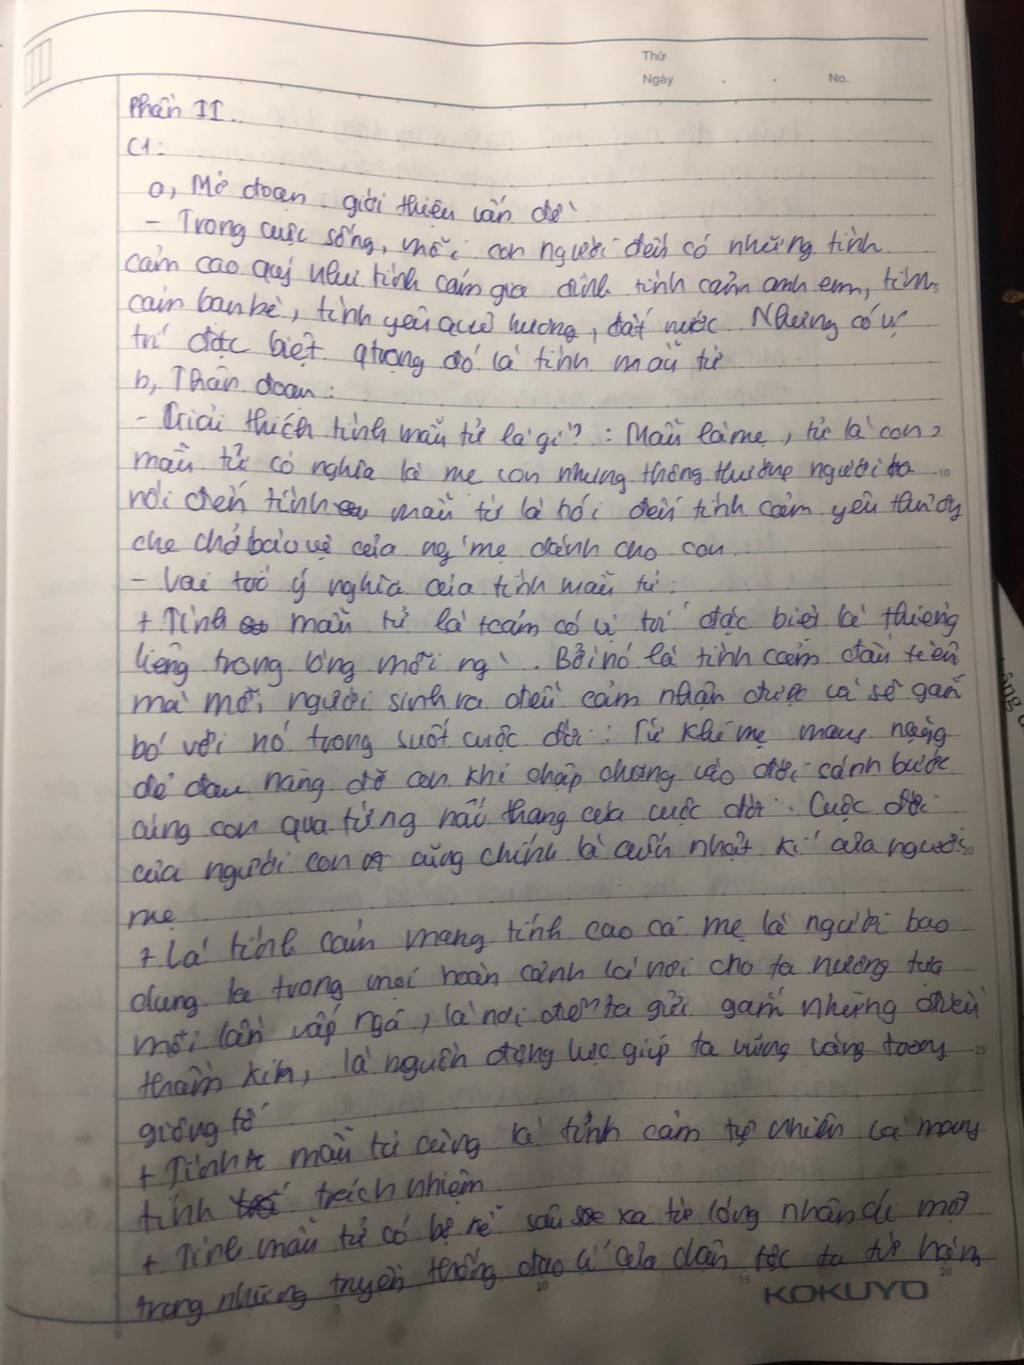 Thứ
Ngày . . No.
Phần II.
C1:
a, Mở đoạn: giới thiệu vấn đề
- Trong cuộc sống, mỗi con người đều có những tình
cảm cao quý như tình cảm gia đình tình cảm anh em, tình
cảm bạn bè, tình yêu quê hương, đất nước. Nhưng có vị
trí đặc biệt qtrọng đó là tình mẫu tử
b, Thân đoạn:
- Giải thích tình mẫu tử là gì? : Mẫu là mẹ, tử là con,
mẫu tử có nghĩa là mẹ con nhưng thông thường người ta
nói đến tình mẫu tử là nói đến tình cảm yêu thương
che chở bảo vệ của ng` mẹ dành cho con
- Vai trò ý nghĩa của tình mẫu tử:
+ Tình mẫu tử là tcảm có vị trí đặc biệt là thiêng
liêng trong lòng mỗi ng`. Bởi nó là tình cảm đầu tiên
mà mỗi người sinh ra đều cảm nhận được và sẽ gắn
bó với nó trong suốt cuộc đời: Từ khi mẹ mang nặng
đẻ đau nâng đỡ con khi chập chững vào đời sánh bước
cùng con qua từng nấc thang của cuộc đời. Cuộc đời
của người con cũng chính là cuốn nhật kí của người
mẹ
+ Là tình cảm mang tính cao cả mẹ là người bao
dung ta trong mọi hoàn cảnh là nơi cho ta nương tựa
mỗi lần vấp ngã, là nơi để ta gửi gắm những điều
thầm kín, là nguồn động lực giúp ta vững vàng trong
giông tố
+ Tình mẫu tử cũng là tình cảm tự nhiên và mang
tính trách nhiệm
+ Tình mẫu tử có bề rễ sâu xa từ lòng nhân ái một
trong những truyền thống đạo lí của dân tộc ta từ hàng
KOKUYO